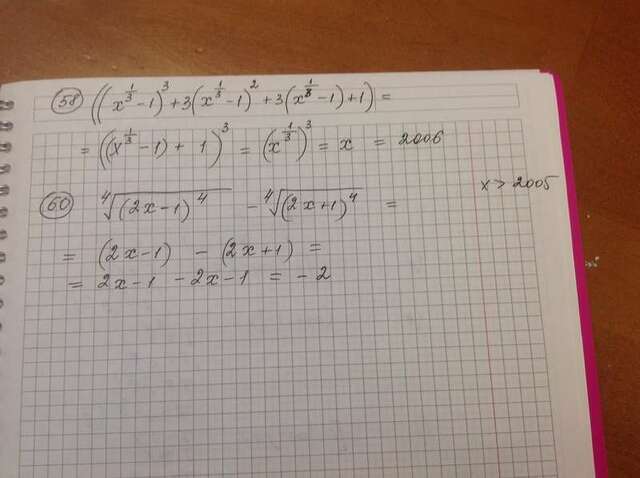 58 ((x^{1/3}-1)^3+3(x^{1/3}-1)^2+3(x^{1/3}-1)+1)=
=((x^{1/3}-1)+1)^3=(x^{1/3})^3=x=2006
60 ∜(2x-1)^4-∜(2x+1)^4= x>2005
=(2x-1)-(2x+1)=
=2x-1-2x-1=-2